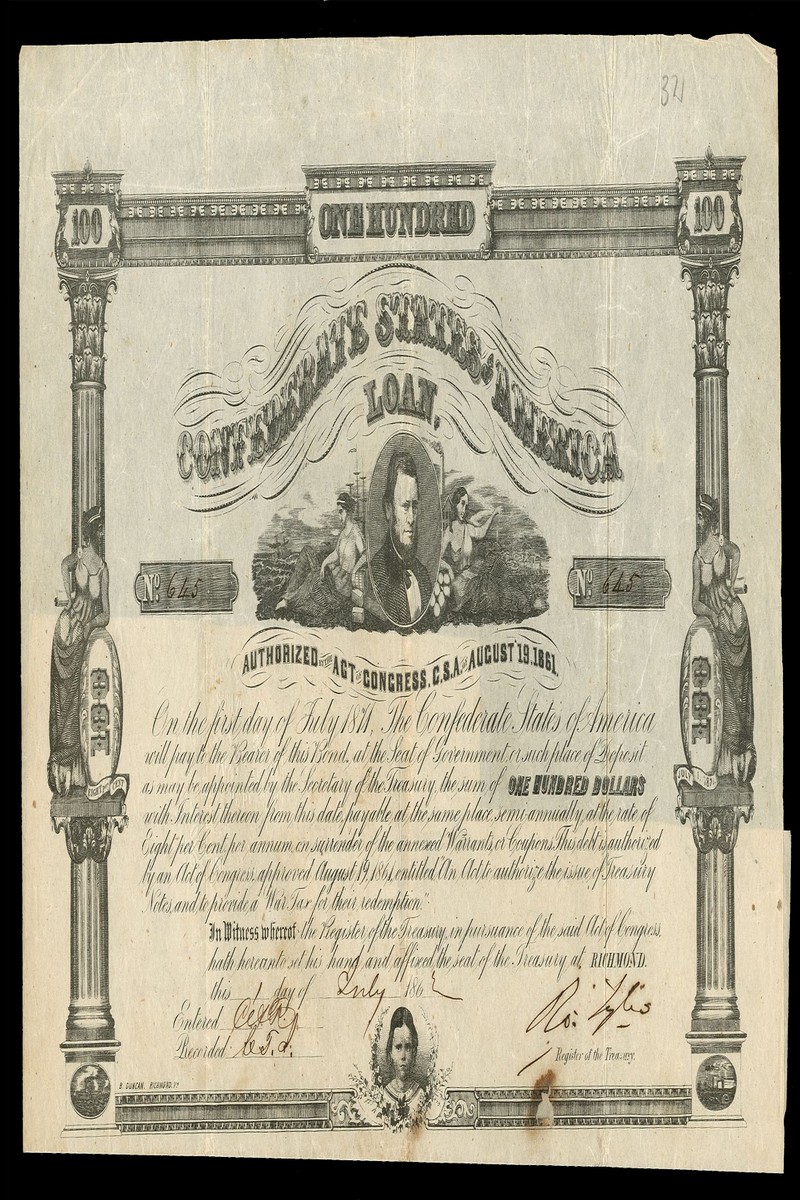 321
100 ONE HUNDRED 100
CONFEDERATE STATES of AMERICA
LOAN,
No. 645
No. 645
AUTHORIZED BY THE ACT OF CONGRESS, C.S.A. OF AUGUST 19, 1861.
On the first day of July 1871, The Confederate States of America
will pay to the Bearer of this Bond, at the Seat of Government, or such place of Deposit
as may be appointed by the Secretary of the Treasury, the sum of ONE HUNDRED DOLLARS
with Interest thereon from this date, payable at the same place semi-annually, at the rate of
Eight per Cent. per annum, on surrender of the annexed Warrants, or Coupons. This debt is authorized
by an Act of Congress, approved August 19, 1861, entitled "An Act, to authorize the issue of Treasury
Notes, and to provide a War Tax for their redemption."
In Witness whereof, the Register of the Treasury, in pursuance of the said Act of Congress,
hath hereunto set his hand and affixed the seal of the Treasury at RICHMOND.
this 1 day of July 1862
Entered
Recorded
Ro. Tyler
Register of the Treasury.
B. DUNCAN. RICHMOND, VA